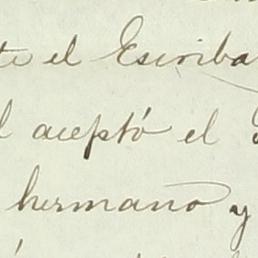 te el Escriba
l aceptó el
hermano y